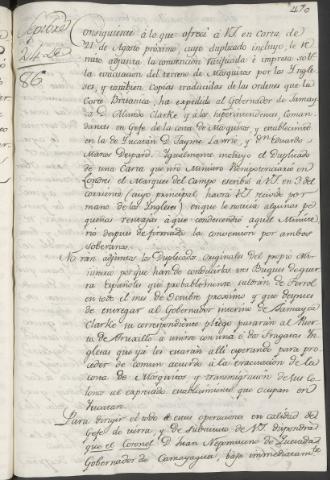 470
24 de
86
Consiguiente à lo que ofrecí à VS en carta de
21 de Agosto próximo, cuyo duplicado incluyo, le re
mito adjunta la convención ratificada è impresa sobre
la evacuacion del terreno de Mosquitos por los Yngle
ses, y tambien copias traducidas de las ordenes que la
Corte Británica ha expedido al Gobernador de Jamay
ca D. Alured Clarke y à los superintendentes, Coman
dantes en Gefe de la costa de Mosquitos y establecimto
en la de Yucatán D. Jayme Lawrie, y Dn Eduardo
Marcos Despard. Ygualmente incluyo el Duplicado
de una Carta que nro Ministro Plenipotenciario en
Londres el Marques del Campo escribe à VS en 3 del
corriente (cuyo principal havrá VS recivido por
mano de los Yngleses) en que le noticia algunas pe
queñas ventajas à que condescendio aquel Ministe
rio despues de firmada la convencion por ambos
soberanos.
No ván adjuntos los Duplicados originales del propio mi
nisterio por que han de conducirlos dos Buques de guer
ra Españoles que probablemente saldrán de Ferrol
en todo el mes de Octubre proximo y que despues
de entregar al Gobernador interino de Jamayca
Clarke su correspondiente pliego pasarán al Puer
to de Truxillo à unirse con una ò dos Fragatas Yn
glesas que ya les estarán allí esperando para pro
ceder de comun acuerdo à la evacuacion de la
costa de Mosquitos y transmigracion de sus Co
lonos al expresado establecimiento que ocupan en
Yucatan.
Para dirigir el todo de estas operaciones en calidad de
Gefe de tierra, y de subalterno de VS. dispondrá
que el Coronel D Juan Nepomuceno de Quesada
Gobernador de Comayagua, baje inmediatamte